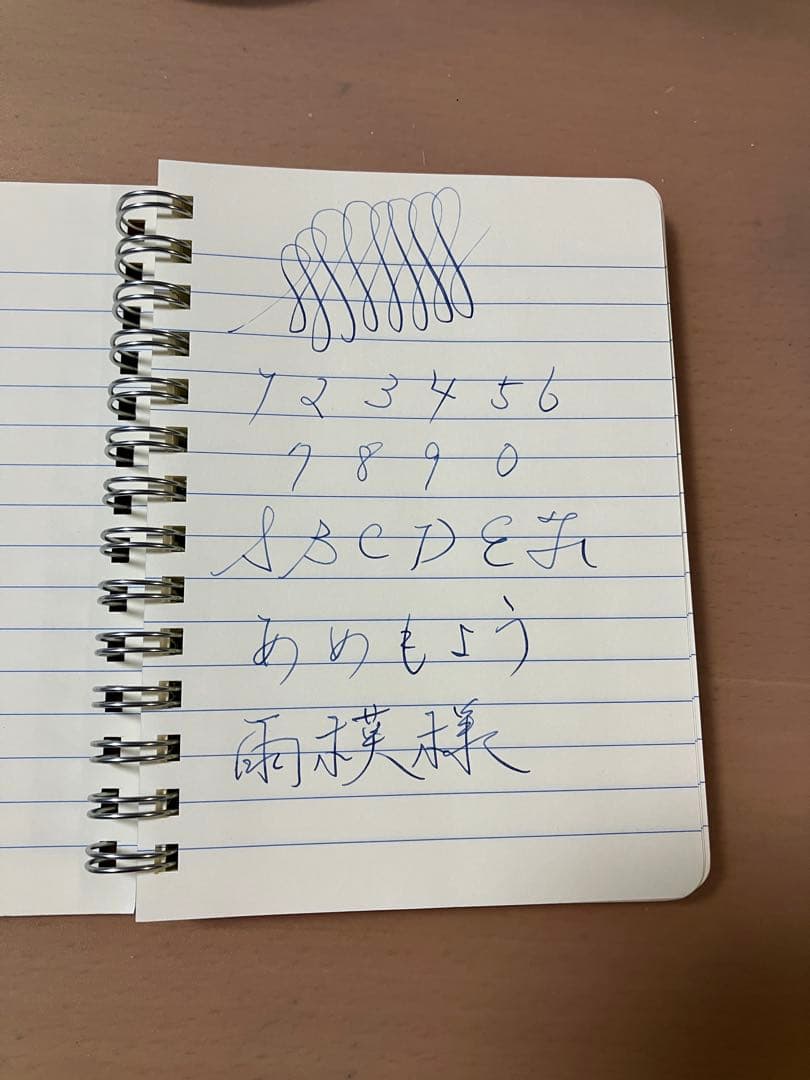 1 2 3 4 5 6
7 8 9 0
A B C D E F
あめもよう
雨模様